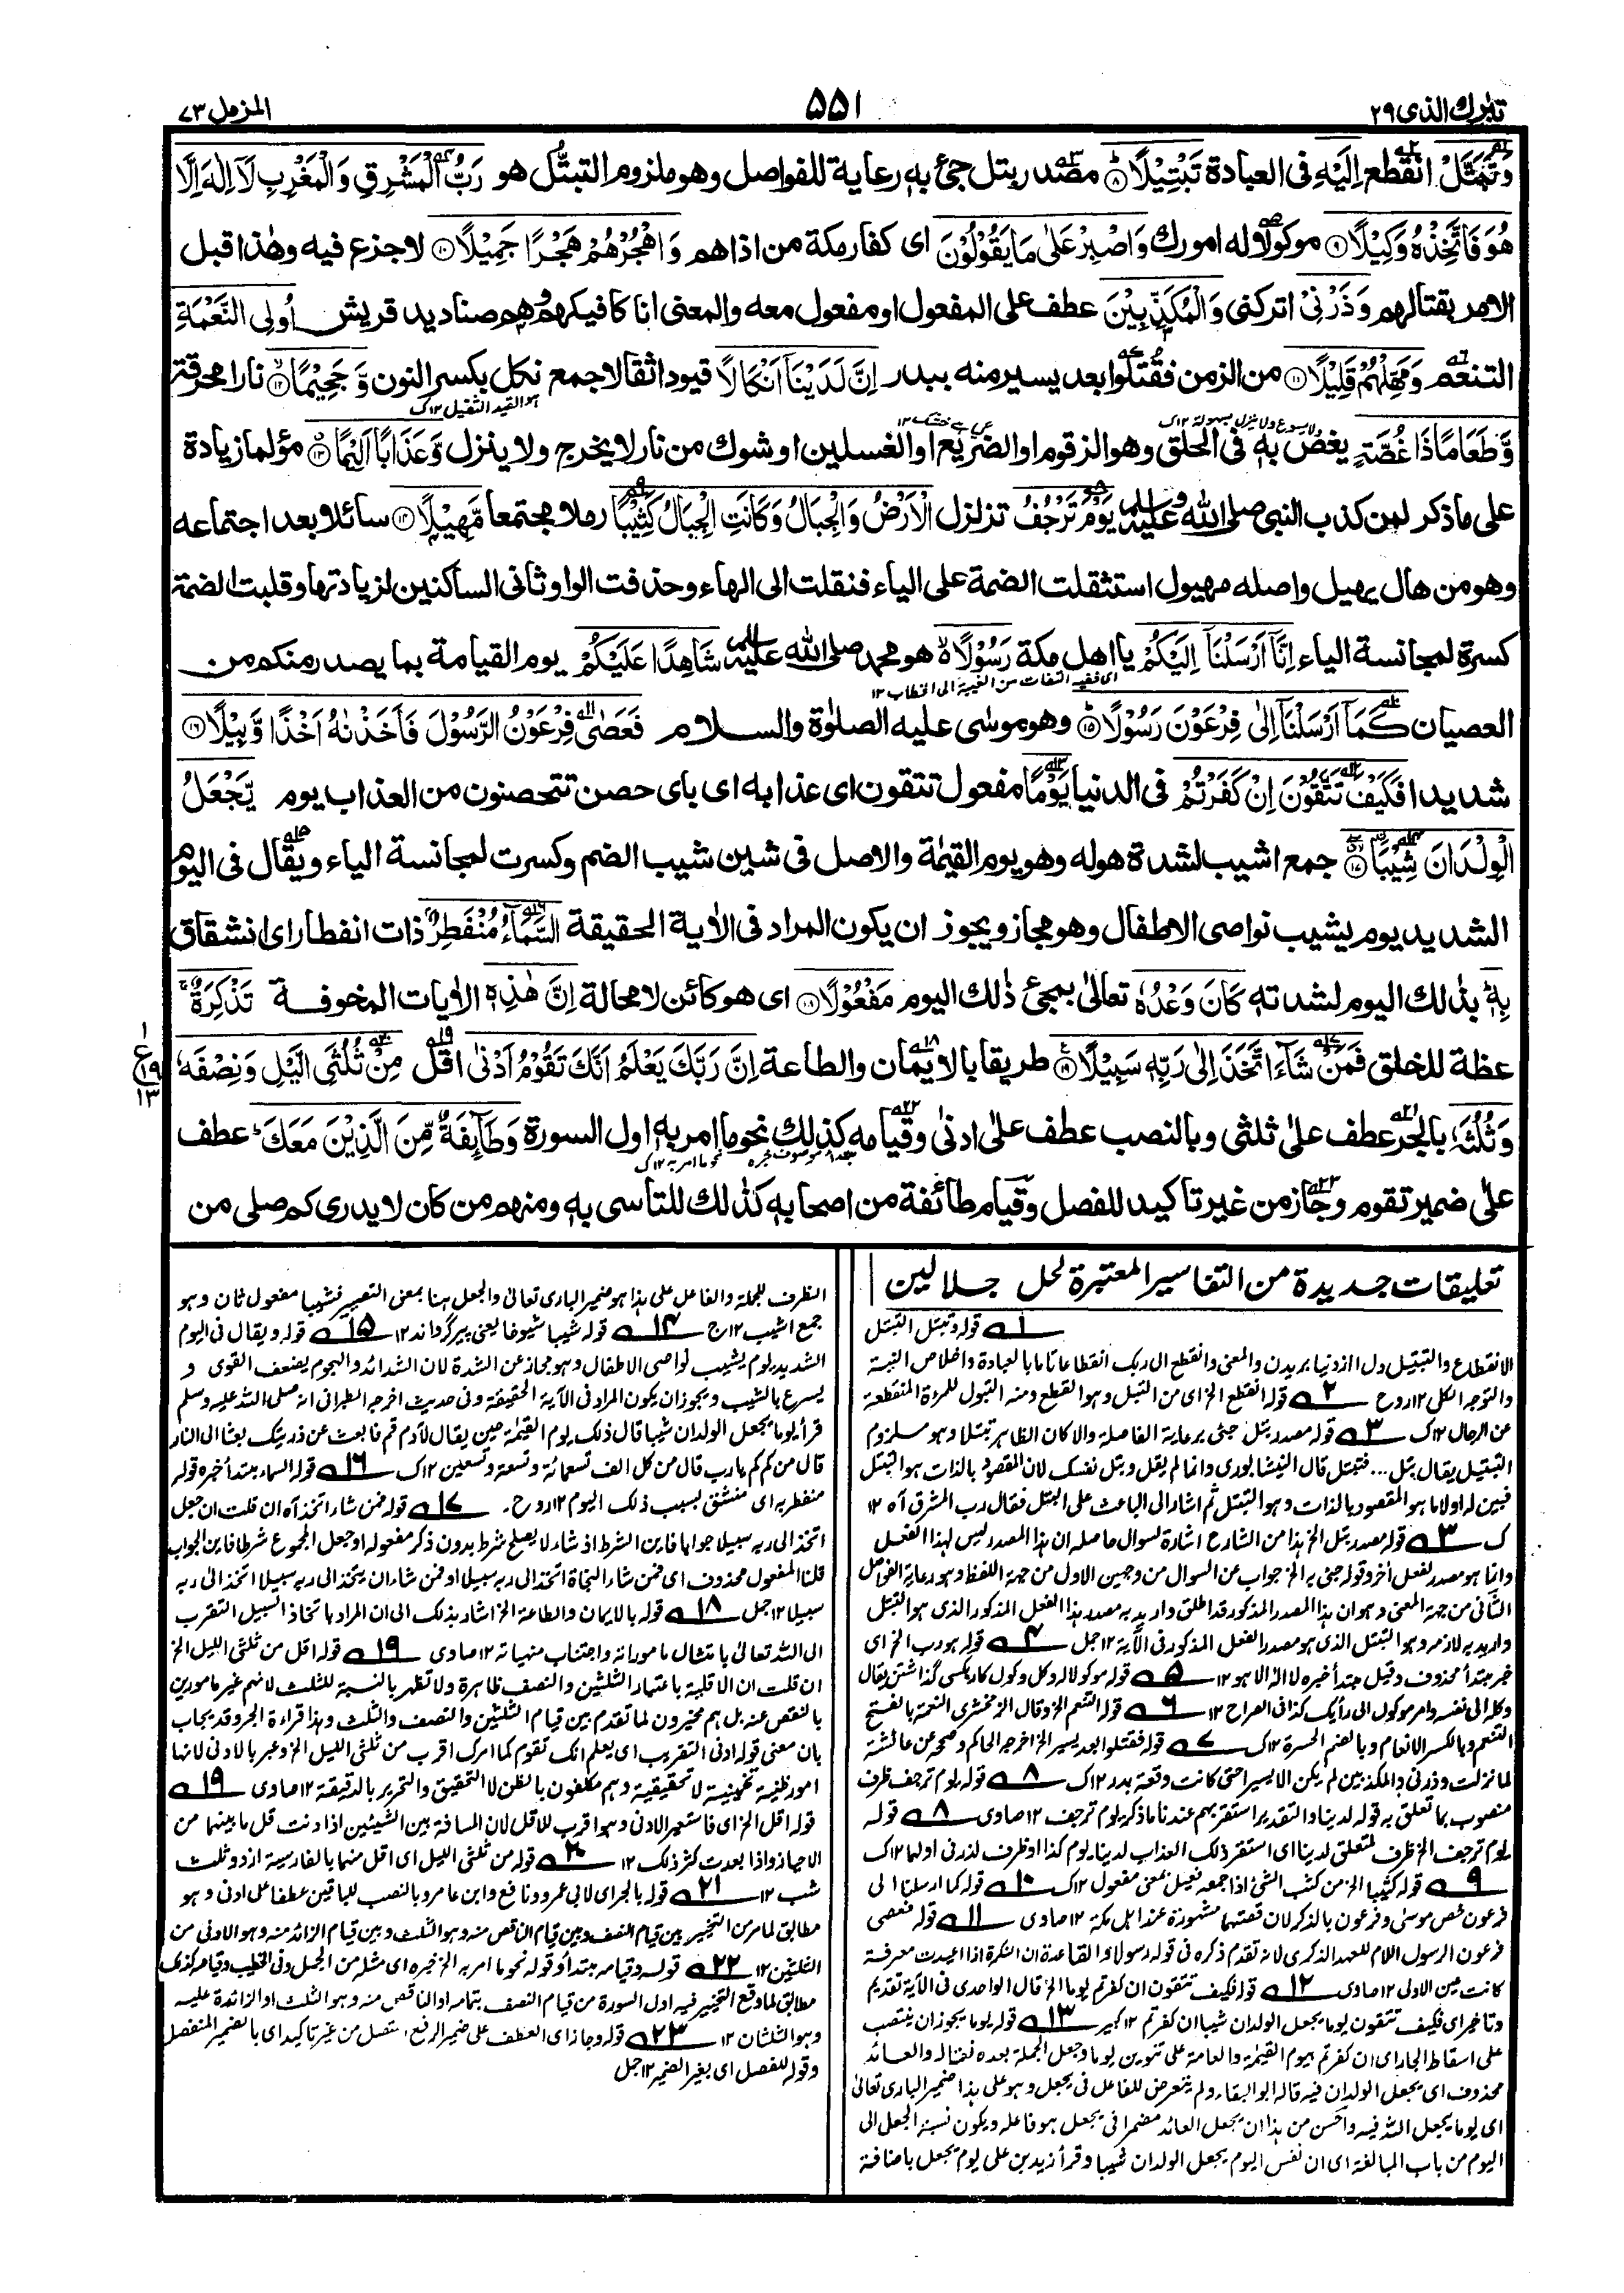 تبٰرك الذى ٢٩
٥٥١
المزمل ٧٣
وَتَبَتَّلْ انقطع اِلَيْهِ فى العبادة تَبْتِيْلًا ۝٨ مصدر بتل جئ به رعاية للفواصل وهو ملزوم التبتُّل هو رَبُّ الْمَشْرِقِ وَالْمَغْرِبِ لَآ اِلٰهَ اِلَّا
هُوَ فَاتَّخِذْهُ وَكِيْلًا ۝٩ موكولا له امورك وَاصْبِرْ عَلٰى مَا يَقُوْلُوْنَ اى كفار مكة من اذاهم وَاهْجُرْهُمْ هَجْرًا جَمِيْلًا ۝١٠ لا جذع فيه وهٰذا قبل
الامر بقتالهم وَذَرْنِىْ اتركنى وَالْمُكَذِّبِيْنَ عطف على المفعول او مفعول معه والمعنى انا كافيكهم وهم صناديد قريش اُولِى النَّعْمَةِ
التنعم وَمَهِّلْهُمْ قَلِيْلًا ۝١١ من الزمن فقُتلوا بعد يسير منه ببدر اِنَّ لَدَيْنَآ اَنْكَالًا قيودا ثقالا جمع نكل بكسر النون وَّجَحِيْمًا ۝١٢ نارا محرقة
هو القيد الثقيل ١٢ ك
وَّطَعَامًا ذَا غُصَّةٍ يغص به فى الحلق وهو الزقوم او الضريع او الغسلين او شوك من نار لا يخرج ولا ينزل وَّعَذَابًا اَلِيْمًا ۝١٣ مؤلما زيادة
على ما ذكر لمن كذب النبى صلى الله عليه وسلم يَوْمَ تَرْجُفُ تزلزل الْاَرْضُ وَالْجِبَالُ وَكَانَتِ الْجِبَالُ كَثِيْبًا رملا مجتمعا مَّهِيْلًا ۝١٤ سائلا بعد اجتماعه
وهو من هال يهيل واصله مهيول استثقلت الضمة على الياء فنقلت الى الهاء وحذفت الواو ثانى الساكنين لزيادتها وقلبت الضمة
كسرة لمجانسة الياء اِنَّآ اَرْسَلْنَآ اِلَيْكُمْ يا اهل مكة رَسُوْلًا هو محمد صلى الله عليه وسلم شَاهِدًا عَلَيْكُمْ يوم القيامة بما يصدر منكم من
اى ففيه التفات من الغيبة الى الخطاب ١٢
العصيان كَمَآ اَرْسَلْنَآ اِلٰى فِرْعَوْنَ رَسُوْلًا ۝١٥ وهو موسى عليه الصلوٰة والسلام فَعَصٰى فِرْعَوْنُ الرَّسُوْلَ فَاَخَذْنٰهُ اَخْذًا وَّبِيْلًا ۝١٦
شديدا فَكَيْفَ تَتَّقُوْنَ اِنْ كَفَرْتُمْ فى الدنيا يَوْمًا مفعول تتقون اى عذابه اى باى حصن تتحصنون من العذاب يوم يَّجْعَلُ
الْوِلْدَانَ شِيْبَا ۝١٧ جمع اشيب لشدة هوله وهو يوم القيٰمة والاصل فى شين شيب الضم وكسرت لمجانسة الياء ويقال فى اليوم
الشديد يوم يشيب نواصى الاطفال وهو مجاز ويجوز ان يكون المراد فى الاٰية الحقيقة السَّمَآءُ مُنْفَطِرٌ ذات انفطار اى انشقاق
بِهٖ بذٰلك اليوم لشدته كَانَ وَعْدُهٗ تعالىٰ بمجئ ذٰلك اليوم مَفْعُوْلًا ۝١٨ اى هو كائن لا محالة اِنَّ هٰذِهٖ الاٰيات المخوفة تَذْكِرَةٌ
عظة للخلق فَمَنْ شَآءَ اتَّخَذَ اِلٰى رَبِّهٖ سَبِيْلًا ۝١٩ طريقا بالايمان والطاعة اِنَّ رَبَّكَ يَعْلَمُ اَنَّكَ تَقُوْمُ اَدْنٰى اقل مِنْ ثُلُثَىِ الَّيْلِ وَنِصْفَهٗ
١ ع ١٩ ١٣
وَثُلُثَهٗ بالجر عطف علىٰ ثلثى وبالنصب عطف علىٰ ادنىٰ وقيامه كذلك نحو ما امر به اول السورة وَطَآئِفَةٌ مِّنَ الَّذِيْنَ مَعَكَ عطف
علىٰ ضمير تقوم وجاز من غير تاكيد للفصل وقيام طائفة من اصحابه كذٰلك للتاسى به ومنهم من كان لا يدرى كم صلى من
تعليقات جديدة من التفاسير المعتبرة لحل جلالين
١ قوله وتبتل التبتل
الانقطاع والتبتيل دل از دنيا بريدن والمعنى وانقطع الى ربك انقطاعا تاما بالعبادة واخلاص النية
والتوجه الكلى ١٢ روح ٢ قوله انقطع الخ اى من التبتل وهو القطع ومنه البتول للمرءة المنقطعة
عن الرجال ١٢ ك ٣ قوله مصدر بتل جئ برعاية الفاصلة والا كان الظاهر تبتلا وهو ملزوم
التبتيل يقال بتل ... فتبتل قال النيشابورى وانما لم يقل وبتل نفسك لان المقصود بالذات هو التبتل
فبين له اولا ما هو المقصود بالذات وهو التبتل ثم اشار الى الباعث على التبتل فقال رب المشرق آه ١٢
ك ٣ قوله مصدر بتل الخ هذا من الشارح اشارة لسوال حاصله ان هذا المصدر ليس لهذا الفعل
وانما هو مصدر لفعل آخر وقوله جئ به الخ جواب عن السوال من وجهين الاول من جهة اللفظ وهو رعاية الفواصل
الثانى من جهة المعنى وهو ان هذا المصدر المذكور قد اطلق واريد به مصدر هذا الفعل المذكور الذى هو التبتل
واريد به لازمه وهو التبتل الذى هو مصدر الفعل المذكور فى الآية ١٢ جمل ٤ قوله هو رب الخ اى
خبر مبتدأ محذوف وقيل مبتدأ خبره لا اله الا هو ١٢ ٥ قوله موكولا له وكل وكول كار بكسى گذاشتن يقال
وكله الى نفسه وامر موكول الى رأيك كذا فى الصراح ١٢ ٦ قوله التنعم الخ وقال الزمخشرى النعمة بالفتح
التنعم وبالكسر الانعام وبالضم المسرة ١٢ ك ٧ قوله فقتلوا بعد يسير الخ اخرجه الحاكم وصححه عن عائشة
لما نزلت وذرنى والمكذبين لم يكن الا يسير حتى كانت وقعة بدر ١٢ ك ٨ قوله يوم ترجف ظرف
منصوب بما تعلق به قوله لدينا والتقدير استقر بهم عندنا ما ذكر يوم ترجف ١٢ صاوى ٨ قوله
يوم ترجف الخ ظرف لمتعلق لدينا اى استقر ذلك العذاب لدينا يوم كذا او ظرف لذرنى اولهما ١٢ ك
٩ قوله كثيبا الخ من كثب الشئ اذا جمعه فعيل بمعنى مفعول ١٢ ك ١٠ قوله كما ارسلنا الى
فرعون خص موسى وفرعون بالذكر لان قصتهما مشهورة عند اهل مكة ١٢ صاوى ١١ قوله فعصى
فرعون الرسول اللام للعهد الذكرى لانه تقدم ذكره فى قوله رسولا والقاعدة ان النكرة اذا اعيدت معرفة
كانت عين الاولى ١٢ صاوى ١٢ قوله فكيف تتقون ان كفرتم يوما الخ قال الواحدى فى الآية تقديم
وتاخير اى فكيف تتقون يوما يجعل الولدان شيبا ان كفرتم ١٢ كبير ١٣ قوله يوما يجوز ان ينتصب
على اسقاط الجار اى ان كفرتم بيوم القيٰمة والعامة على تنوين يوما وجعل الجملة بعده نعتا له والعائد
محذوف اى يجعل الولدان فيه قاله ابو البقاء ولم يتعرض للفاعل فى يجعل وهو على هذا ضمير البارى تعالىٰ
اى يوما يجعل الله فيه واحسن من هذا ان يجعل العائد مضمرا فى يجعل هو فاعله ويكون نسبة الجعل الى
اليوم من باب المبالغة اى ان نفس اليوم يجعل الولدان شيبا وقرأ زيد بن على يوم يجعل باضافة
الظرف للجملة والفاعل على هذا هو ضمير البارى تعالىٰ والجعل هنا بمعنى التصيير فشيبا مفعول ثان وهو
جمع اشيب ١٢ ج ١٤ قوله شيبا شيوخا يعنى پير گرداند ١٢ ١٥ قوله ويقال فى اليوم
الشديد يوم يشيب نواصى الاطفال وهو مجاز عن الشدة لان الشدائد والهموم يضعف القوى و
يسرع بالشيب ويجوز ان يكون المراد فى الآية الحقيقة وفى حديث اخرجه الطبرانى انه صلى الله عليه وسلم
قرأ يوما يجعل الولدان شيبا قال ذلك يوم القيٰمة حين يقال لآدم قم فابعث من ذريتك بعثا الى النار
قال من كم كم يا رب قال من كل الف تسعمائة وتسعة وتسعين ١٢ ك ١٦ قوله السماء مبتدأ خبره قوله
منفطر به اى منشق بسبب ذلك اليوم ١٢ روح ۔ ١٧ قوله فمن شاء اتخذ آه ان قلت ان جعل
اتخذ الى ربه سبيلا جوابا فاين الشرط اذ شاء لا يصلح شرطا بدون ذكر مفعوله او جعل المجموع شرطا فاين الجواب
قلنا المفعول محذوف اى فمن شاء النجاة اتخذ الى ربه سبيلا او فمن شاء ان يتخذ الى ربه سبيلا اتخذ الى ربه
سبيلا ١٢ جمل ١٨ قوله بالايمان والطاعة الخ اشار بذلك الى ان المراد باتخاذ السبيل التقرب
الى الله تعالىٰ بامتثال ماموراته واجتناب منهياته ١٢ صاوى ١٩ قوله اقل من ثلثى الليل الخ
ان قلت ان الاقلية باعتبار الثلثين والنصف ظاهرة ولا تظهر بالنسبة للثلث لانهم غير مامورين
بالنقص عنه بل هم مخيرون لما تقدم بين قيام الثلثين والنصف والثلث وهذا قراءة الجر وقد يجاب
بان معنى قوله ادنى التقريب اى يعلم انك تقوم كما امرك اقرب من ثلثى الليل الخ وعبر بالادنى لانها
امور ظنية تخمينية لا تحقيقية وهم مكلفون بالظن لا التحقيق والتحرير بالدقيقة ١٢ صاوى ١٩
قوله اقل الخ اى فاستعير الادنى وهو اقرب للاقل لان المسافة بين الشيئين اذا دنت قل ما بينهما من
الاحياز واذا بعدت كثر ذلك ١٢ ٢٠ قوله من ثلثى الليل اى اقل منهما بالفارسية از دو ثلث
شب ١٢ ٢١ قوله بالجر اى لابى عمرو ونافع وابن عامر وبالنصب للباقين عطفا على ادنى وهو
مطابق لما مر من التخيير بين قيام النصف وبين قيام الناقص منه وهو الثلث وبين قيام الزائد منه وهو الادنى من
الثلثين ١٢ ٢٢ قوله وقيامه مبتدأ وقوله نحو ما امر به الخ خبره اى مثله من الجمل وفى الخطيب وقيامه كذلك
مطابق لما وقع التخيير فيه اول السورة من قيام النصف بتمامه او الناقص منه وهو الثلث او الزائدة عليه
وهو الثلثان ١٢ ٢٣ قوله وجاز اى العطف على ضمير الرفع المتصل من غير تاكيد اى بالضمير المنفصل
وقوله للفصل اى بغير الضمير ١٢ جمل